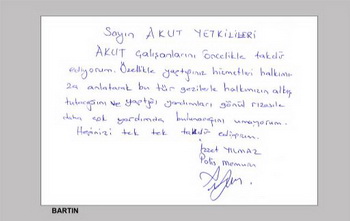 Sayın AKUT YETKİLİLERİ
AKUT Çalışanlarını öncelikle takdir
ediyorum. Özellikle yaptığınız hizmetleri halkımı
za anlatarak bu tür gezilerle halkımızın altış
tutacağını ve yaptığı yardımları gönül rızasıle
daha çok yardımda bulunacağını umuyorum.
Hepinizi tek tek takdir ediyorum.
İzzet YILMAZ
Polis memuru
BARTIN